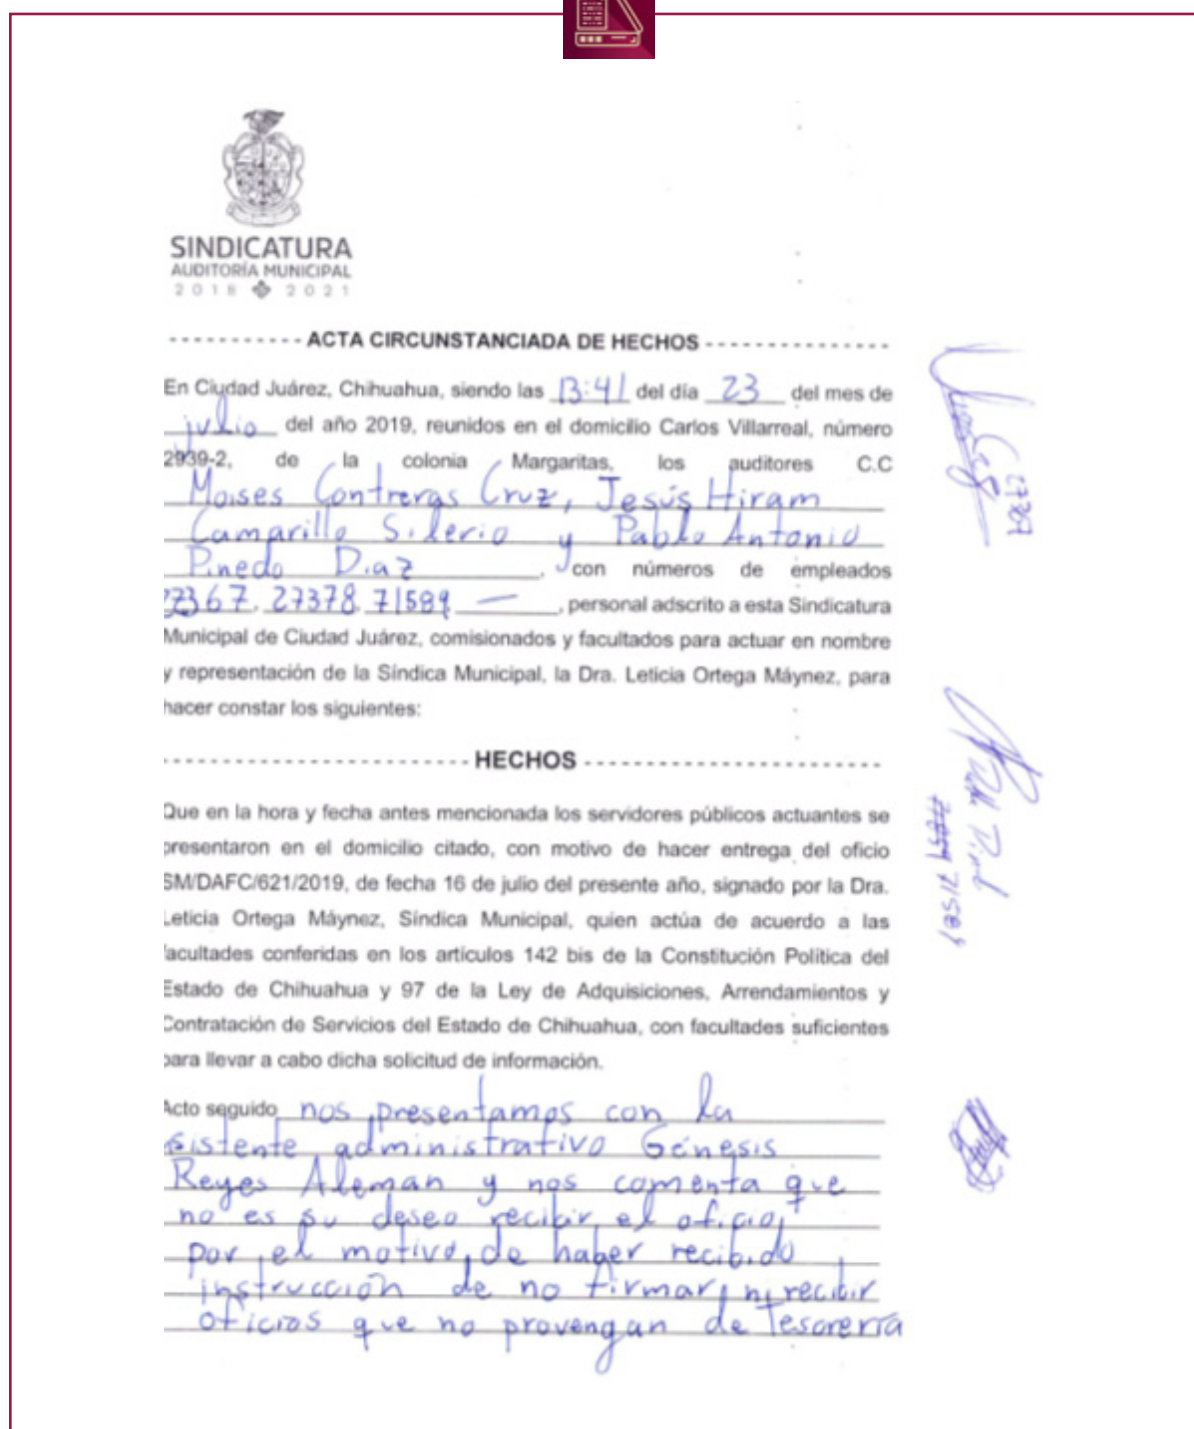 SINDICATURA
AUDITORÍA MUNICIPAL
2018 2021
- - - - - - - - - - - ACTA CIRCUNSTANCIADA DE HECHOS - - - - - - - - - - - - - - -
En Ciudad Juárez, Chihuahua, siendo las 13:41 del día 23 del mes de
julio del año 2019, reunidos en el domicilio Carlos Villarreal, número
2939-2, de la colonia Margaritas, los auditores C.C
Moises Contreras Cruz, Jesús Hiram
Camarillo Silerio y Pablo Antonio
Pinedo Diaz, con números de empleados
27367, 27378, 71589 —, personal adscrito a esta Sindicatura
Municipal de Ciudad Juárez, comisionados y facultados para actuar en nombre
y representación de la Síndica Municipal, la Dra. Leticia Ortega Máynez, para
hacer constar los siguientes:
- - - - - - - - - - - - - - - - - - - - - - - - - HECHOS - - - - - - - - - - - - - - - - - - - - - - - - -
Que en la hora y fecha antes mencionada los servidores públicos actuantes se
presentaron en el domicilio citado, con motivo de hacer entrega del oficio
SM/DAFC/621/2019, de fecha 16 de julio del presente año, signado por la Dra.
Leticia Ortega Máynez, Síndica Municipal, quien actúa de acuerdo a las
facultades conferidas en los artículos 142 bis de la Constitución Política del
Estado de Chihuahua y 97 de la Ley de Adquisiciones, Arrendamientos y
Contratación de Servicios del Estado de Chihuahua, con facultades suficientes
para llevar a cabo dicha solicitud de información.
Acto seguido nos presentamos con la
asistente administrativo Génesis
Reyes Aleman y nos comenta que
no es su deseo recibir el oficio,
por el motivo de haber recibido
instrucción de no firmar, ni recibir
oficios que no provengan de Tesorería
71589